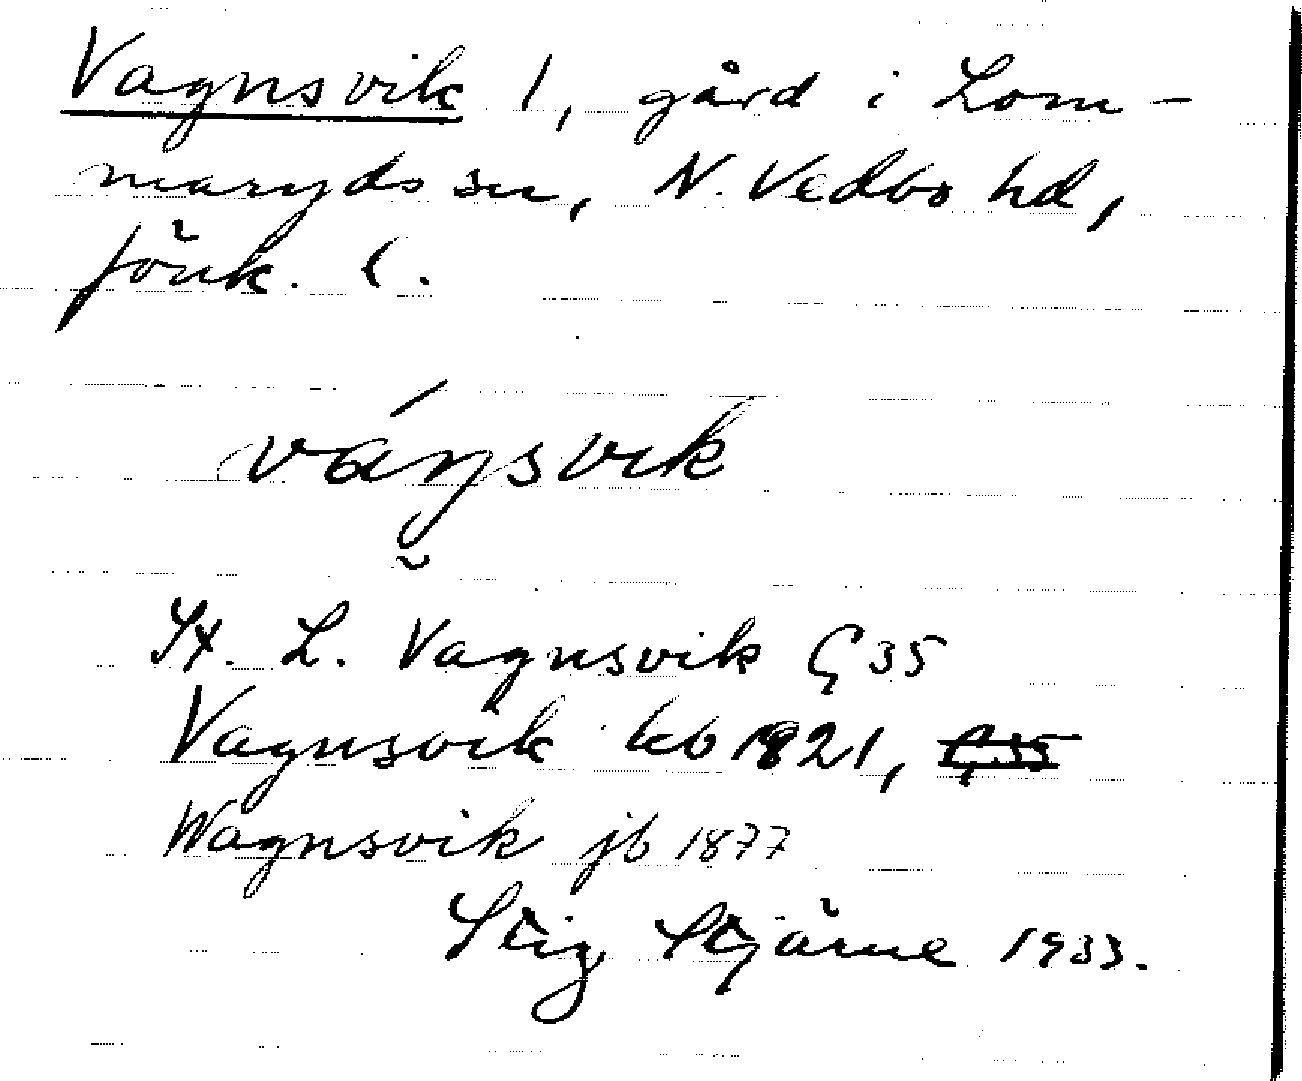 Vagnsvik 1, gård i Lom-
maryds sn, N. Vedbo hd,
Jönk. l.
váŋsvik
St. L. Vagnsvik G 35
Vagnsvik kb 1821, G 35
Wagnsvik jb 1877
Stig Stjärne 1933.